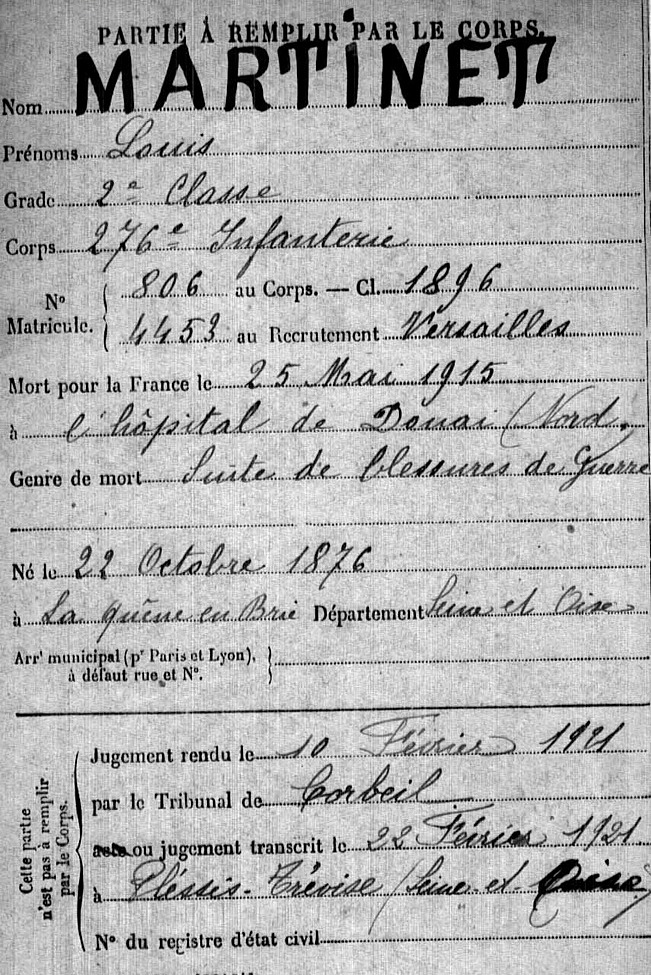 PARTIE À REMPLIR PAR LE CORPS.
Nom MARTINET
Prénoms Louis
Grade 2e Classe
Corps 276e Infanterie
N° Matricule. 806 au Corps. — Cl. 1896
4453 au Recrutement Versailles
Mort pour la France le 25 Mai 1915
à l'hôpital de Douai (Nord.
Genre de mort Suite de blessures de Guerre
Né le 22 Octobre 1876
à La queue en Brie Département Seine et Oise
Arrt municipal (pr Paris et Lyon),
à défaut rue et N°.
Cette partie n'est pas à remplir par le Corps.
Jugement rendu le 10 Février 1921
par le Tribunal de Corbeil
acte ou jugement transcrit le 22 Février 1921.
à Pléssis-Trévise (Seine-et-Oise)
N° du registre d'état civil